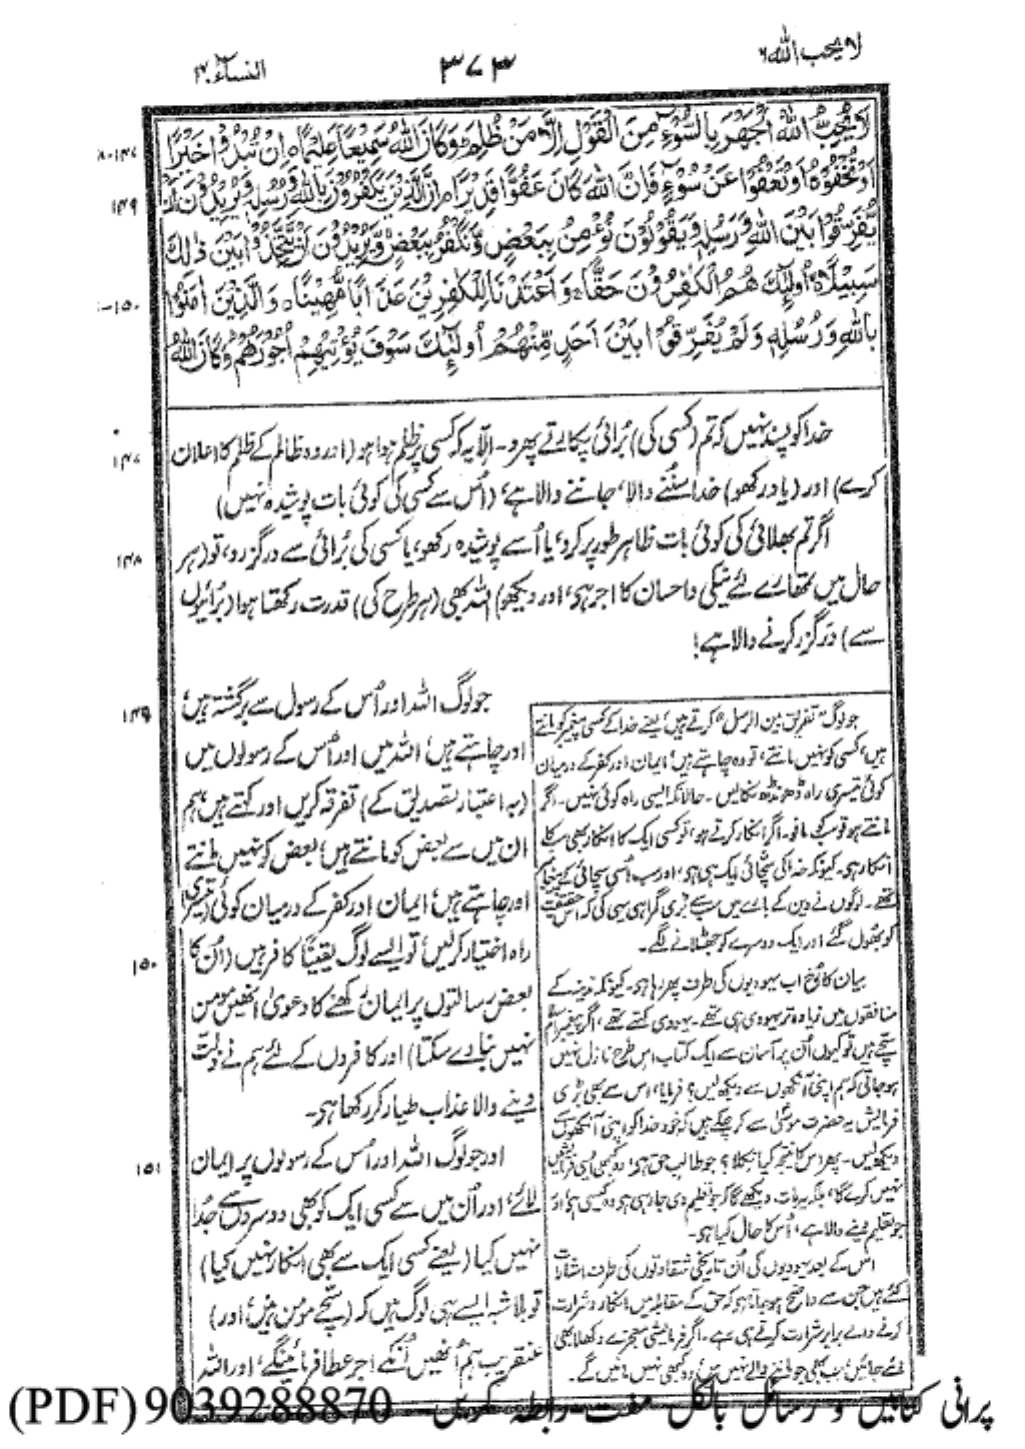 لا یحب اللہ ٦
٣٧٣
النساء ۴
لَا يُحِبُّ اللهُ الْجَهْرَ بِالسُّوْٓءِ مِنَ الْقَوْلِ اِلَّا مَنْ ظُلِمَ وَكَانَ اللهُ سَمِيْعًا عَلِيْمًا ○ اِنْ تُبْدُوْا خَيْرًا
١۴٧-٨
اَوْ تُخْفُوْهُ اَوْ تَعْفُوْا عَنْ سُوْٓءٍ فَاِنَّ اللهَ كَانَ عَفُوًّا قَدِيْرًا ○ اِنَّ الَّذِيْنَ يَكْفُرُوْنَ بِاللهِ وَرُسُلِهٖ وَيُرِيْدُوْنَ اَنْ
١۴٩
يُّفَرِّقُوْا بَيْنَ اللهِ وَرُسُلِهٖ وَيَقُوْلُوْنَ نُؤْمِنُ بِبَعْضٍ وَّنَكْفُرُ بِبَعْضٍ وَّيُرِيْدُوْنَ اَنْ يَّتَّخِذُوْا بَيْنَ ذٰلِكَ
سَبِيْلًا ○ اُولٰٓئِكَ هُمُ الْكٰفِرُوْنَ حَقًّا وَاَعْتَدْنَا لِلْكٰفِرِيْنَ عَذَابًا مُّهِيْنًا ○ وَالَّذِيْنَ اٰمَنُوْا
١۵٠
بِاللهِ وَرُسُلِهٖ وَلَمْ يُفَرِّقُوْا بَيْنَ اَحَدٍ مِّنْهُمْ اُولٰٓئِكَ سَوْفَ يُؤْتِيْهِمْ اُجُوْرَهُمْ وَكَانَ اللهُ
خدا کو پسند نہیں کہ تم (کسی کی) بُرائی پکارتے پھرو۔ اِلّا یہ کہ کسی پر ظلم ہوا ہو (اور وہ ظالم کے ظلم کا اعلان
١۴٧
کرے) اور (یاد رکھو) خدا سننے والا، جاننے والا ہے، (اُس سے کسی کی کوئی بات پوشیدہ نہیں)
اگر تم بھلائی کی کوئی بات ظاہر طور پر کرو، یا اُسے پوشیدہ رکھو، یا کسی کی بُرائی سے درگزرو، تو (ہر
١۴٨
حال میں تمھارے لئے نیکی و احسان کا اجر ہے، اور دیکھو) اللہ بھی (ہر طرح کی) قدرت رکھتا ہوا (بُرائیوں
سے) درگزر کرنے والا ہے!
جو لوگ اللہ اور اُس کے رسول سے برگشتہ ہیں،
١۴٩
اور چاہتے ہیں، اللہ میں اور اُس کے رسولوں میں
(بہ اعتبار تصدیق کے) تفرقہ کریں اور کہتے ہیں، ہم
ان میں سے بعض کو مانتے ہیں، بعض کو نہیں مانتے
اور چاہتے ہیں، ایمان اور کفر کے درمیان کوئی (تیسری)
راہ اختیار کرلیں، تو ایسے لوگ یقیناً کافر ہیں (اُن کا
١۵٠
بعض رسالتوں پر ایمان رکھنے کا دعویٰ انھیں مومن
نہیں بنا دے سکتا) اور کافروں کے لئے ہم نے ذلت
دینے والا عذاب طیار کر رکھا ہے۔
اور جو لوگ اللہ اور اُس کے رسولوں پر ایمان
١۵١
لائے، اور اُن میں سے کسی ایک کو بھی دوسروں سے جُدا
نہیں کیا (یعنے کسی ایک سے بھی انکار نہیں کیا)
تو بلاشبہ ایسے ہی لوگ ہیں کہ (سچے مومن ہیں، اور)
عنقریب ہم اُنھیں اُنکے اجر عطا فرمائینگے، اور اللہ
جو لوگ "تفریق بین الرسل" کرتے ہیں، یعنے خدا کے کسی پیغمبر کو مانتے
ہیں، کسی کو نہیں مانتے، تو وہ چاہتے ہیں، ایمان اور کفر کے درمیان
کوئی تیسری راہ ڈھونڈھ نکالیں۔ حالانکہ ایسی راہ کوئی نہیں۔ اگر
مانتے ہو تو سب کو مانو۔ اگر انکار کرتے ہو، تو کسی ایک کا انکار بھی سب کا
انکار ہے۔ کیونکہ خدا کی سچّائی ایک ہی ہے، اور سب اُسی سچائی کے پیغامبر
تھے۔ لوگوں نے دین کے بارے میں سب سے بڑی گمراہی یہی کی کہ اس حقیقت
کو بھول گئے اور ایک دوسرے کو جھٹلانے لگے۔
بیان کا رُخ اب یہودیوں کی طرف پھر رہا ہے۔ کیونکہ مدینہ کے
منافقوں میں زیادہ تر یہودی ہی تھے۔ یہودی کہتے تھے، اگر پیغمبر اسلام
سچے ہیں تو کیوں اُن پر آسمان سے ایک کتاب اس طرح نازل نہیں
ہوجاتی کہ ہم اپنی آنکھوں سے دیکھ لیں؟ فرمایا، اس سے بھی بڑی
فرمایش یہ حضرت موسیٰ سے کر چکے ہیں کہ خود خدا کو اپنی آنکھوں سے
دیکھ لیں۔ پھر اس کا نتیجہ کیا نکلا؟ جو طالب حق ہو، وہ کبھی ایسی فرمایشیں
نہیں کرے گا، بلکہ یہ بات دیکھے گا کہ جو تعلیم دی جا رہی ہو وہ کیسی ہے، اور
جو تعلیم دینے والا ہے، اُس کا حال کیا ہے۔
اس کے بعد یہودیوں کی اُن تاریخی شقاوتوں کی طرف اشارات
کئے ہیں جن سے واضح ہوجاتا ہے کہ حق کے مقابلہ میں انکار و شرارت
کرنے والے برابر شرارت کرتے ہی رہے۔ اگر فرمایشی معجزے دکھلا بھی
دئے جائیں، جب بھی جو ماننے والے نہیں ہیں، وہ کبھی نہیں مانیں گے۔
پرانی کتابیں و رسائل بالکل مفت رابطہ کریں (PDF) 9039288870